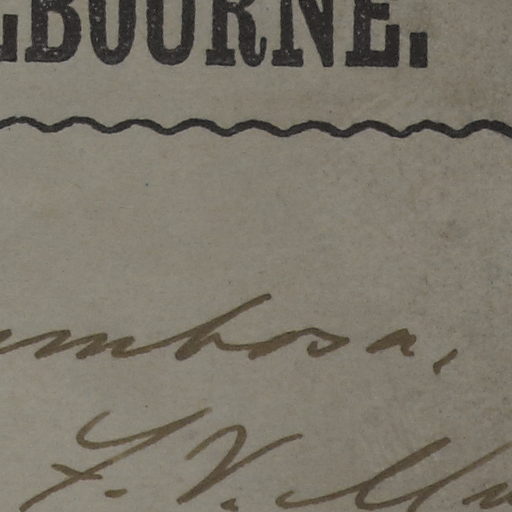 LBOURNE.
umbosa,
F. V. Mu